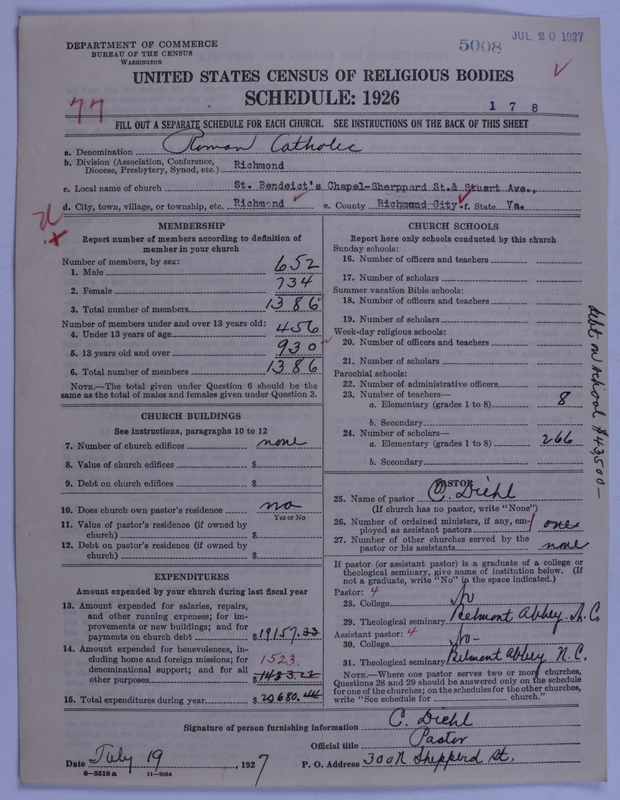 DEPARTMENT OF COMMERCE
BUREAU OF THE CENSUS
WASHINGTON
5008
JUL 20 1927
UNITED STATES CENSUS OF RELIGIOUS BODIES
SCHEDULE: 1926
77
1 7 8
FILL OUT A SEPARATE SCHEDULE FOR EACH CHURCH. SEE INSTRUCTIONS ON THE BACK OF THIS SHEET
a. Denomination Roman Catholic
b. Division (Association, Conference, Diocese, Presbytery, Synod, etc.) Richmond
c. Local name of church St. Bendeict's Chapel-Sherppard St.& Stuart Ave.,
d. City, town, village, or township, etc. Richmond e. County Richmond City f. State Va.
MEMBERSHIP
Report number of members according to definition of
member in your church
Number of members, by sex:
1. Male 652
2. Female 734
3. Total number of members 1386
Number of members under and over 13 years old:
4. Under 13 years of age 456
5. 13 years old and over 930
6. Total number of members 1386
NOTE.—The total given under Question 6 should be
same as the total of males and females given under Question 3.
CHURCH BUILDINGS
See instructions, paragraphs 10 to 12
7. Number of church edifices none
8. Value of church edifices $
9. Debt on church edifices $
10. Does church own pastor's residence no
Yes or No
11. Value of pastor's residence (if owned by
church) $
12. Debt on pastor's residence (if owned by
church) $
EXPENDITURES
Amount expended by your church during last fiscal year
13. Amount expended for salaries, repairs,
and other running expenses; for im-
provements or new buildings; and for
payments on church debt $19157.33
14. Amount expended for benevolences, in-
cluding home and foreign missions; for
denominational support; and for all
other purposes 1523
15. Total expenditures during year $20680.44
CHURCH SCHOOLS
Report here only schools conducted by this church
Sunday schools:
16. Number of officers and teachers
17. Number of scholars
Summer vacation Bible schools:
18. Number of officers and teachers
19. Number of scholars
Week-day religious schools:
20. Number of officers and teachers
21. Number of scholars
Parochial schools:
22. Number of administrative officers
23. Number of teachers—
a. Elementary (grades 1 to 8) 8
b. Secondary
24. Number of scholars—
a. Elementary (grades 1 to 8) 266
b. Secondary
debt on school $43500—
PASTOR
25. Name of pastor C. Diehl
(If church has no pastor, write "None")
26. Number of ordained ministers, if any, em-
ployed as assistant pastors one
27. Number of other churches served by the
pastor or his assistants none
If pastor (or assistant pastor) is a graduate of a college or
theological seminary, give name of institution below. (If
not a graduate, write "No" in the space indicated.)
Pastor: 4
28. College No
29. Theological seminary Belmont Abbey N.C.
Assistant pastor: 4
30. College No-
31. Theological seminary Belmont Abbey N.C.
NOTE.—Where one pastor serves two or more churches,
Questions 28 and 29 should be answered only on the schedule
for one of the churches; on the schedules for the other churches,
write "See schedule for church."
Signature of person furnishing information C. Diehl
Official title Pastor
Date July 19, 1927 P. O. Address 300 N Shepperd St.
8—5518a 11—9034